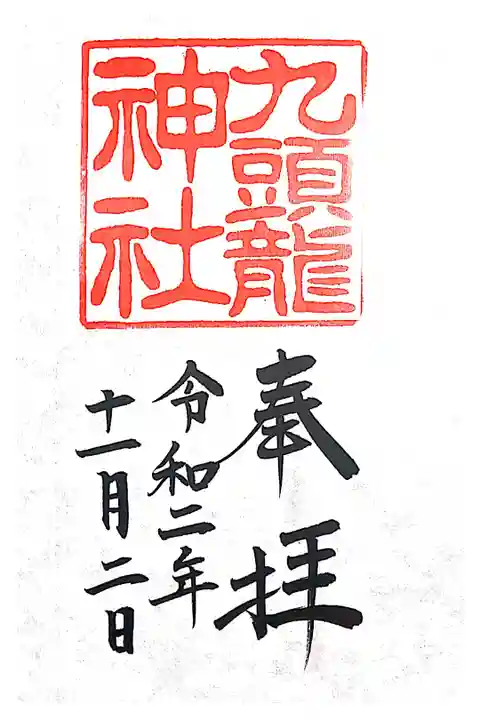 九頭龍
神社
奉拝
令和二年
十一月二日